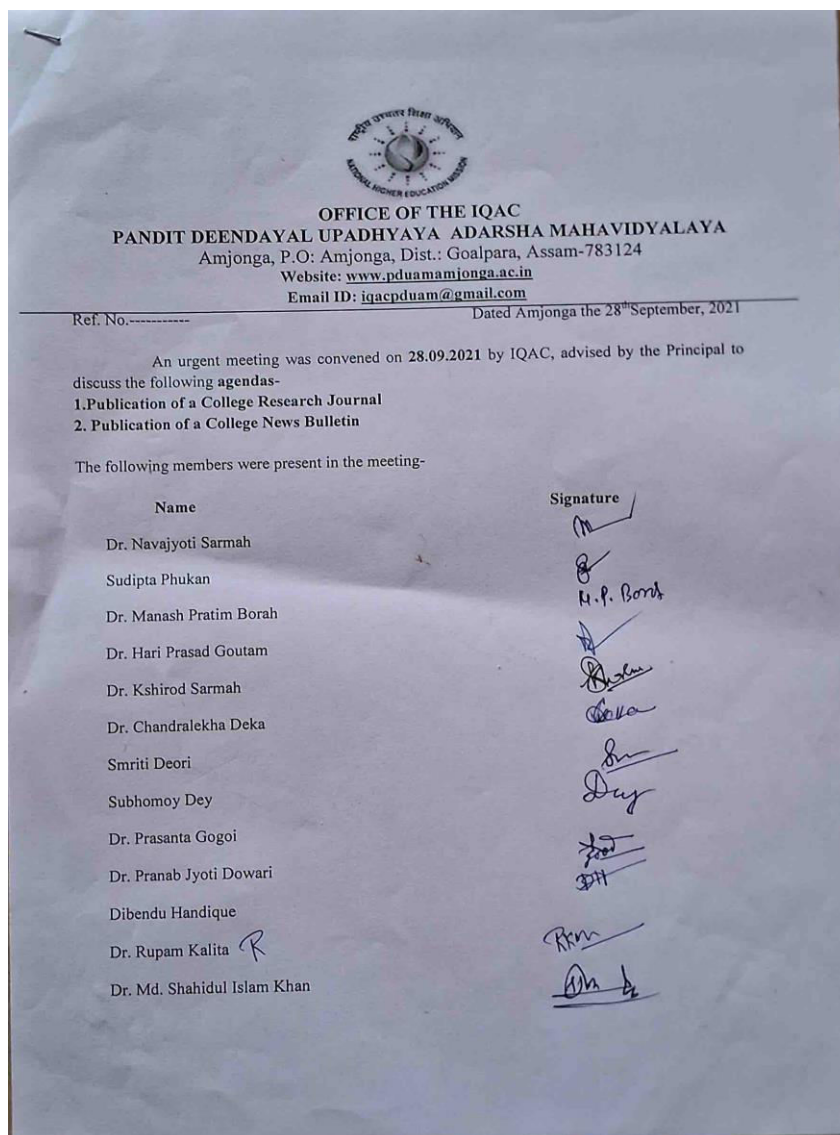 राष्ट्रीय उच्चतर शिक्षा अभियान
NATIONAL HIGHER EDUCATION MISSION
OFFICE OF THE IQAC
PANDIT DEENDAYAL UPADHYAYA ADARSHA MAHAVIDYALAYA
Amjonga, P.O: Amjonga, Dist.: Goalpara, Assam-783124
Website: www.pduamamjonga.ac.in
Email ID: iqacpduam@gmail.com
Ref. No.----------- Dated Amjonga the 28thSeptember, 2021
An urgent meeting was convened on 28.09.2021 by IQAC, advised by the Principal to
discuss the following agendas-
1.Publication of a College Research Journal
2. Publication of a College News Bulletin
The following members were present in the meeting-
Name Signature
Dr. Navajyoti Sarmah
Sudipta Phukan
Dr. Manash Pratim Borah M.P. Borah
Dr. Hari Prasad Goutam
Dr. Kshirod Sarmah
Dr. Chandralekha Deka Deka
Smriti Deori
Subhomoy Dey Dey
Dr. Prasanta Gogoi
Dr. Pranab Jyoti Dowari
Dibendu Handique
Dr. Rupam Kalita R
Dr. Md. Shahidul Islam Khan